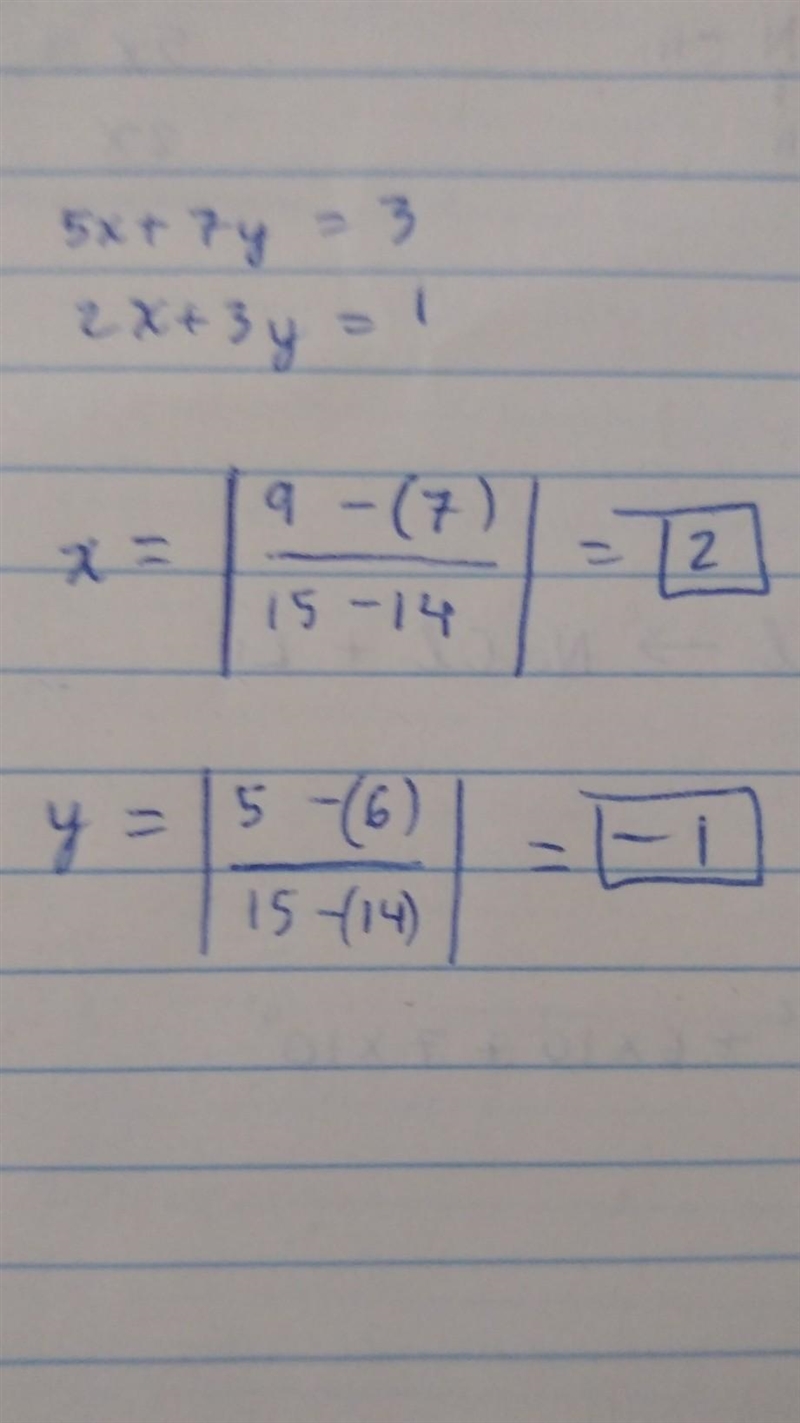 5x + 7y = 3
2x + 3y = 1
x = | 9 - (7) / 15 - 14 | = 2
y = | 5 - (6) / 15 - (14) | = - 1